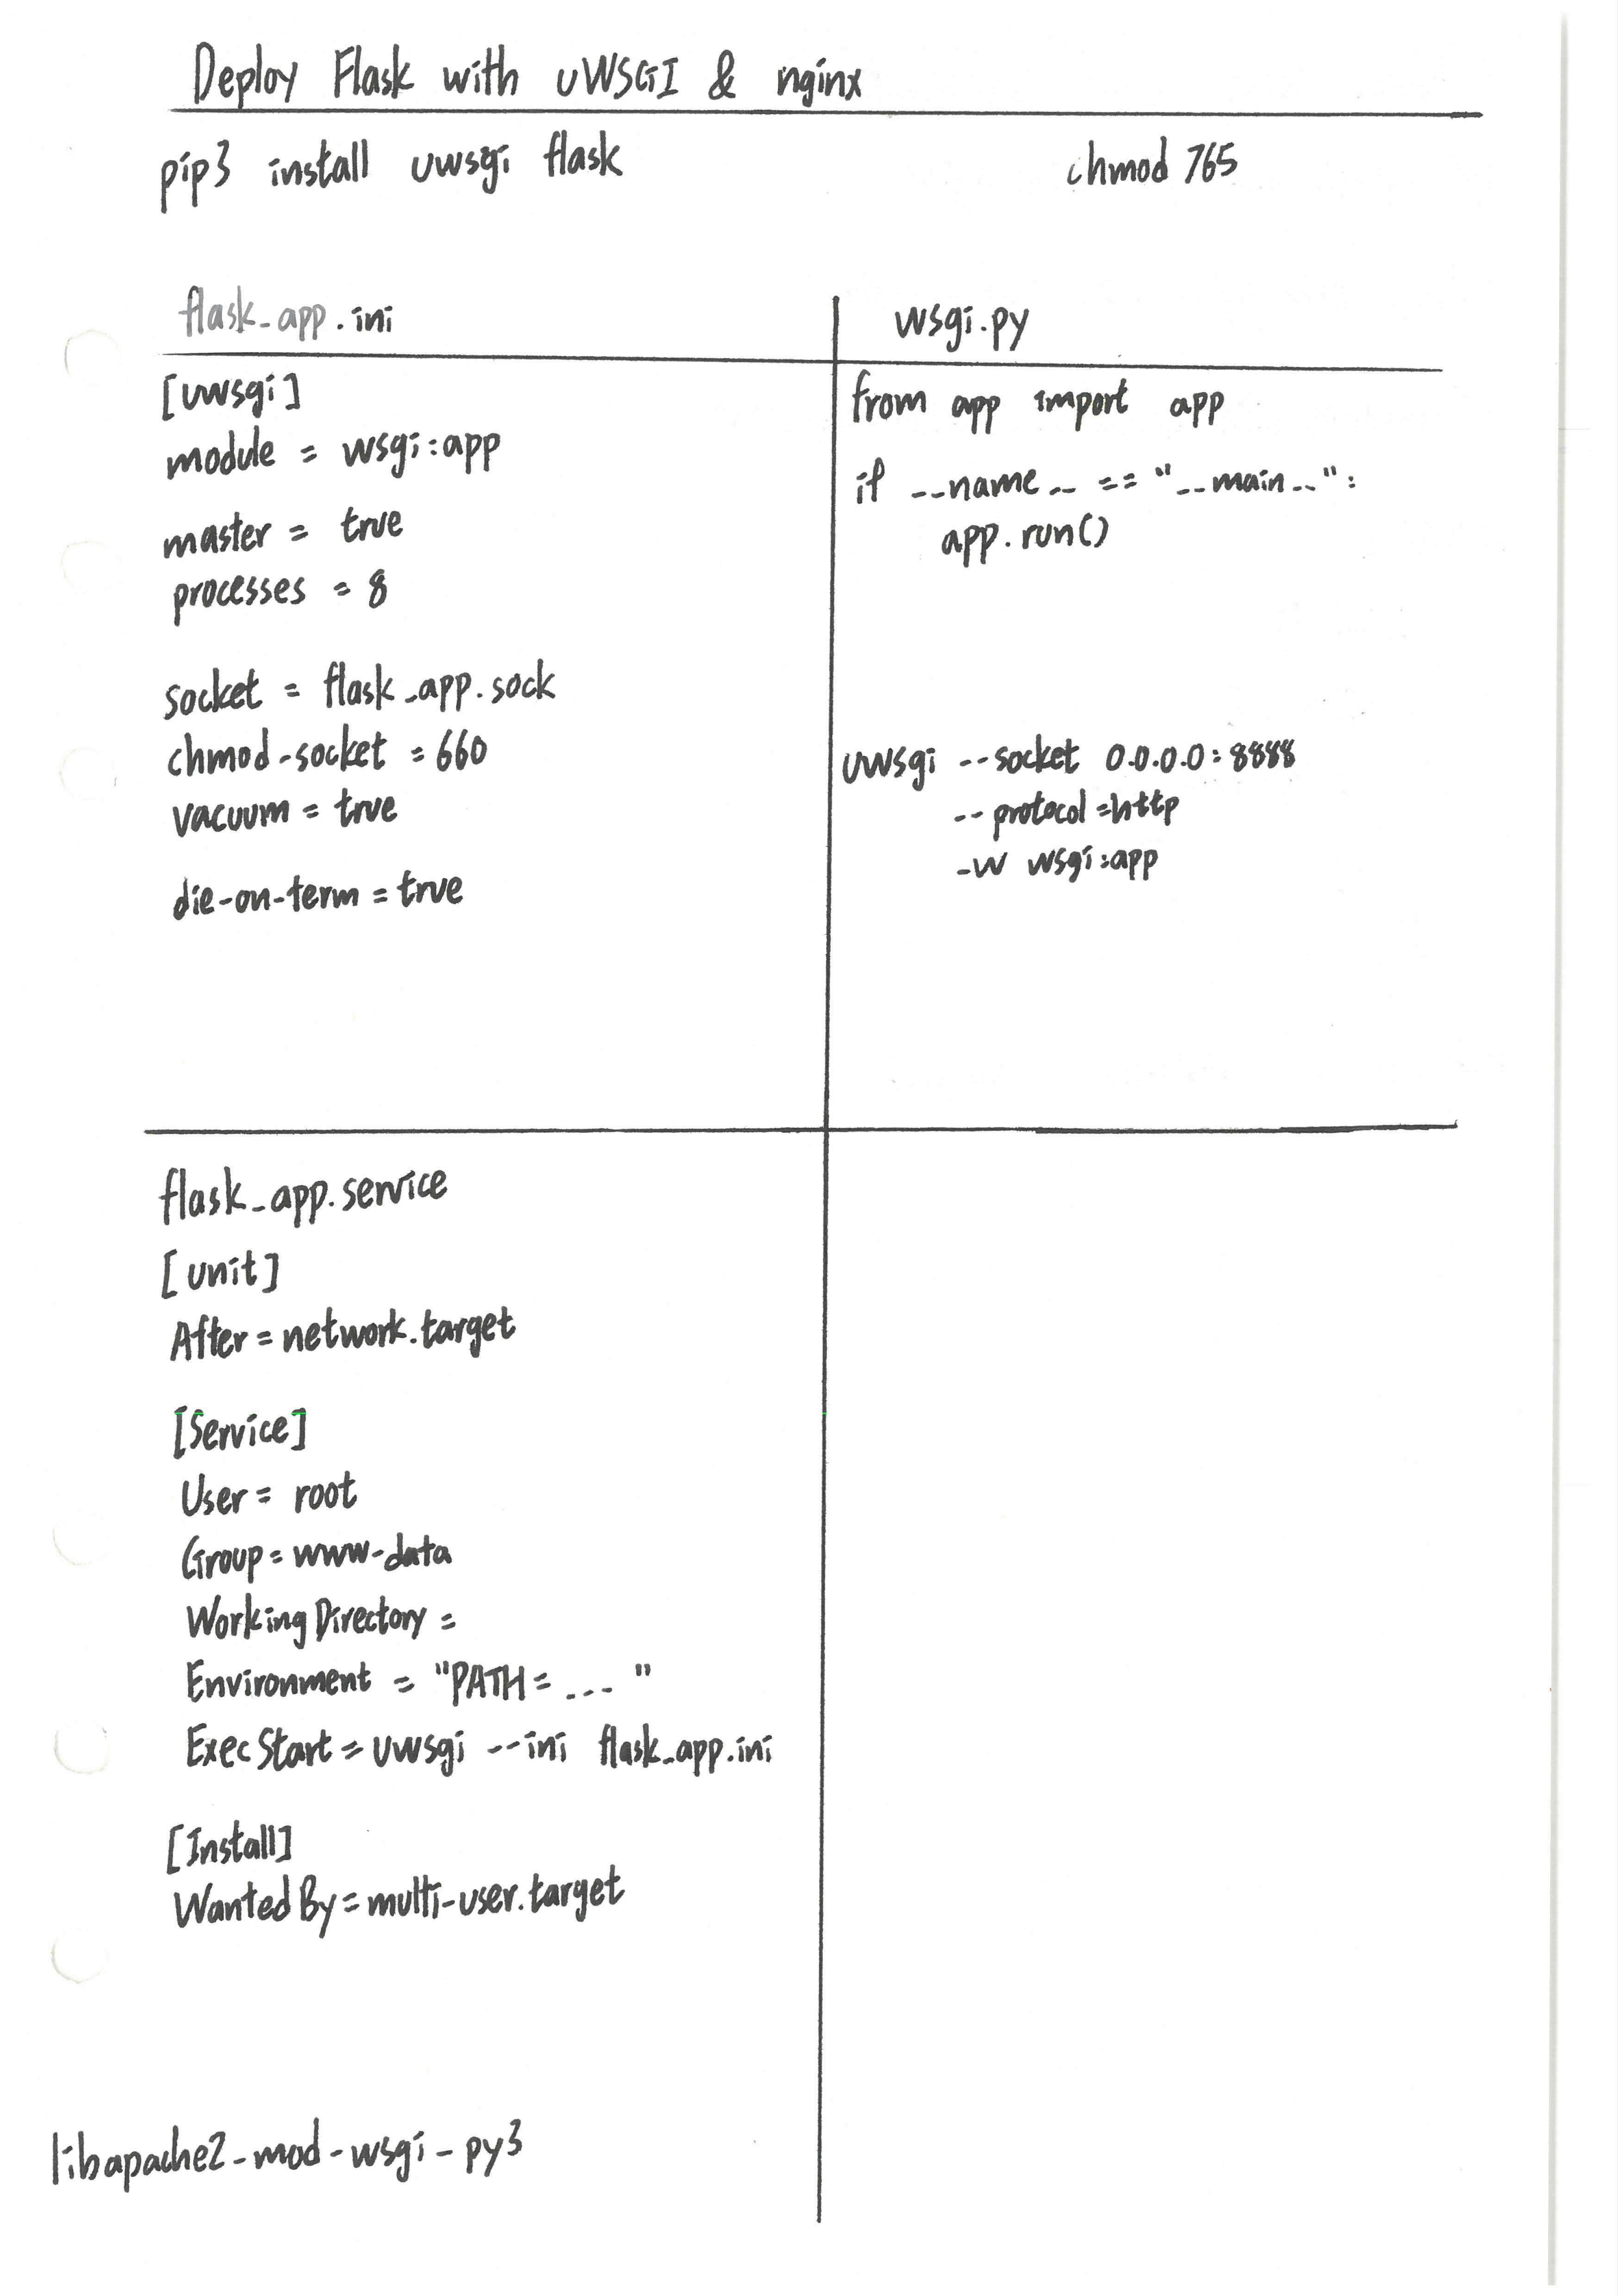 Deploy Flask with uWSGI & nginx
pip3 install uwsgi flask
chmod 765
flask_app.ini
[uwsgi]
module = wsgi:app
master = true
processes = 8
socket = flask_app.sock
chmod-socket = 660
vacuum = true
die-on-term = true
wsgi.py
from app import app
if __name__ == "__main__":
app.run()
uwsgi --socket 0.0.0.0:8888
--protocol=http
-w wsgi:app
flask_app.service
[unit]
After=network.target
[Service]
User = root
Group = www-data
WorkingDirectory =
Environment = "PATH= ... "
ExecStart = uwsgi --ini flask_app.ini
[Install]
WantedBy=multi-user.target
libapache2-mod-wsgi-py3